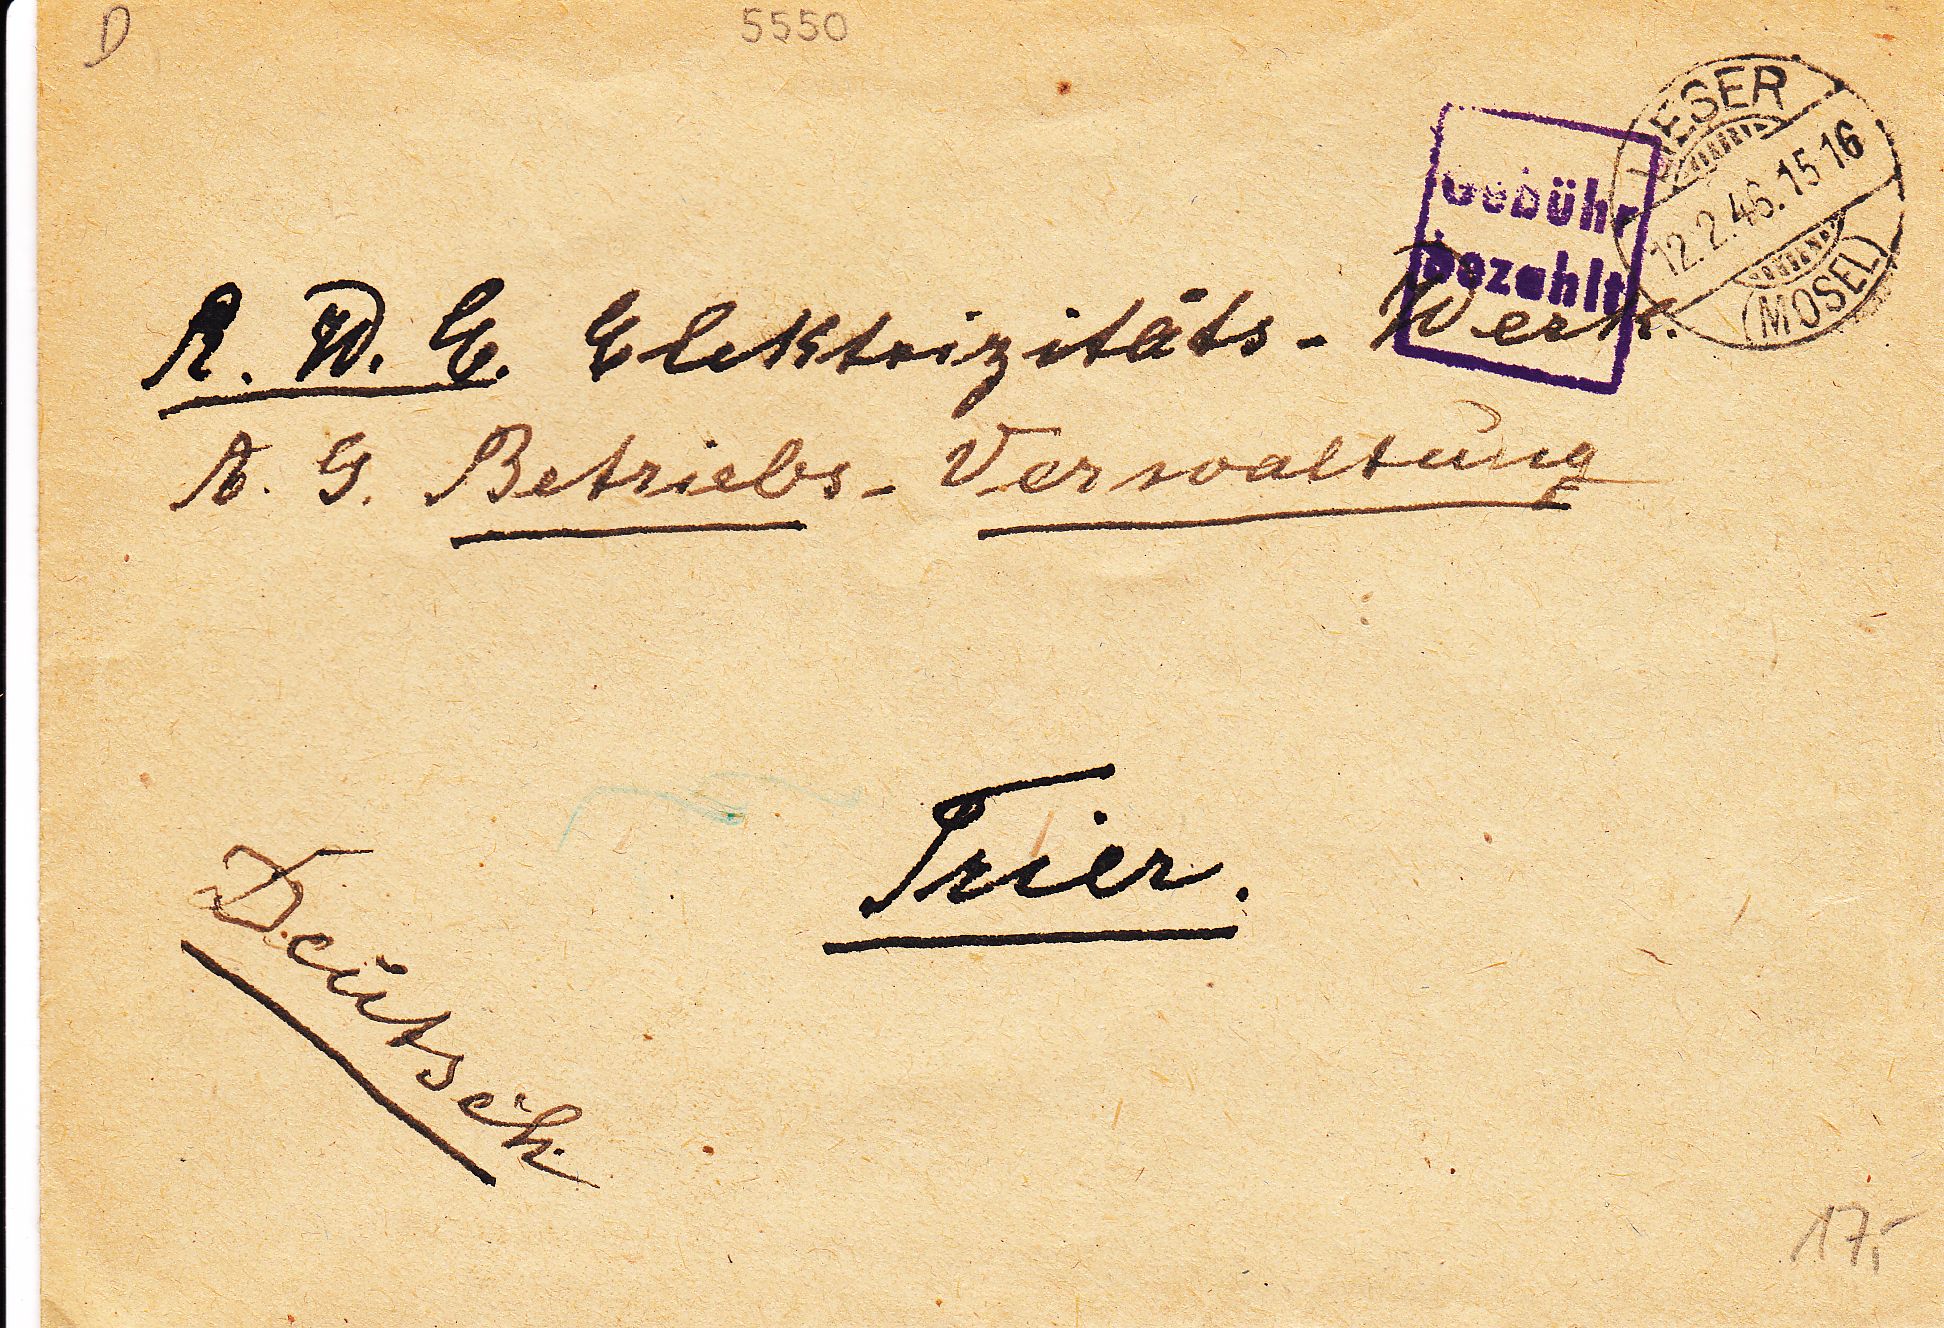 D
5550
LIESER
12.2.46.15-16
(MOSEL)
Gebühr
bezahlt
R. W. E. Elektrizitäts-Werk.
A. G. Betriebs-Verwaltung
Trier.
Deutsch
17,-